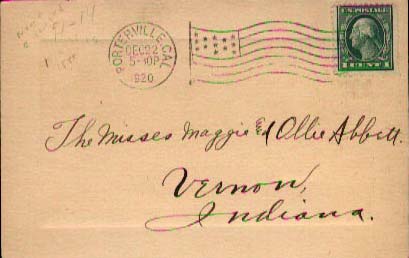 PORTERVILLE, CAL.
DEC 22
5-30P
1920
U.S. POSTAGE
1 CENT 1
The Misses Maggie & Ollie Abbett.
Vernon,
Indiana.